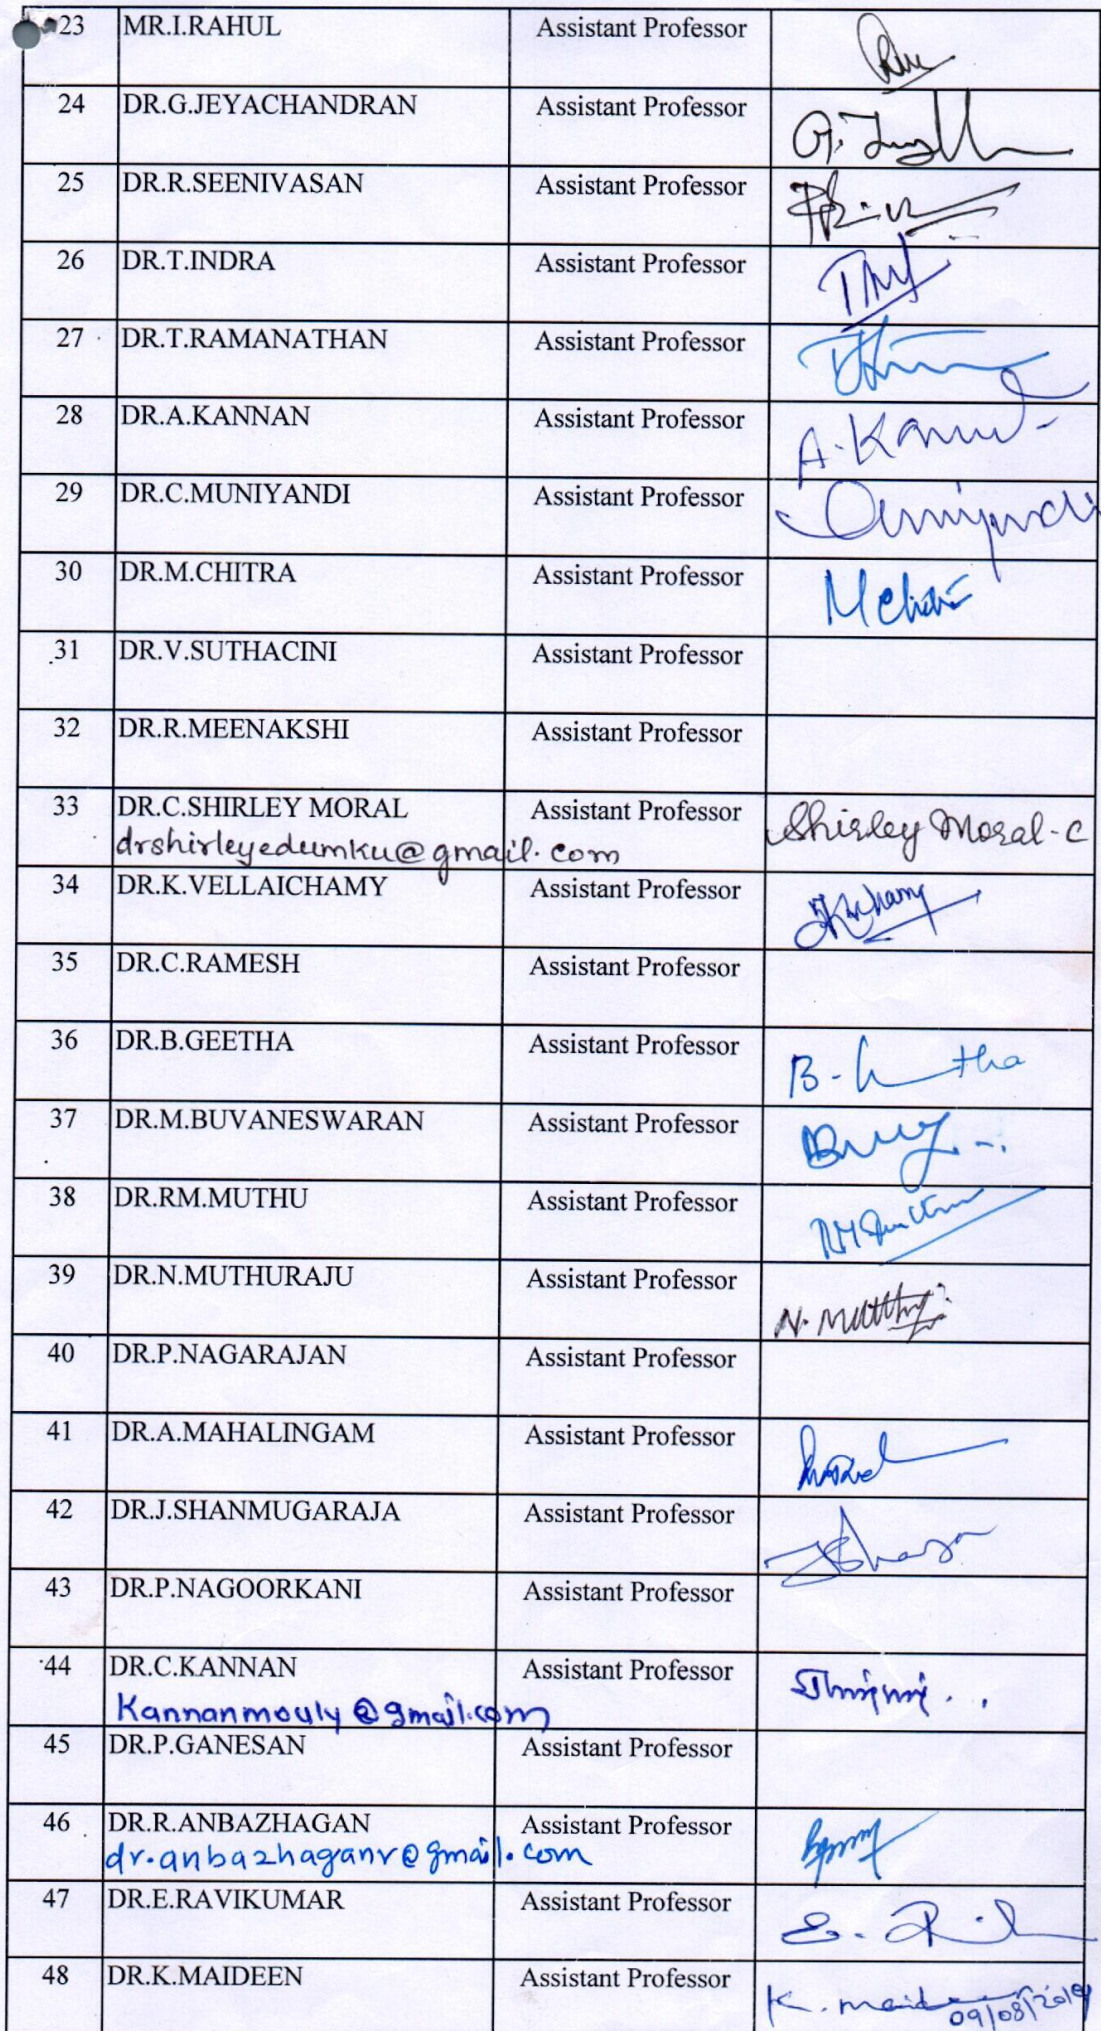 23 MR.I.RAHUL Assistant Professor
24 DR.G.JEYACHANDRAN Assistant Professor
25 DR.R.SEENIVASAN Assistant Professor
26 DR.T.INDRA Assistant Professor
27 DR.T.RAMANATHAN Assistant Professor
28 DR.A.KANNAN Assistant Professor
29 DR.C.MUNIYANDI Assistant Professor
30 DR.M.CHITRA Assistant Professor
31 DR.V.SUTHACINI Assistant Professor
32 DR.R.MEENAKSHI Assistant Professor
33 DR.C.SHIRLEY MORAL Assistant Professor Shirley Moral-C
drshirleyedumku@gmail.com
34 DR.K.VELLAICHAMY Assistant Professor
35 DR.C.RAMESH Assistant Professor
36 DR.B.GEETHA Assistant Professor
37 DR.M.BUVANESWARAN Assistant Professor
38 DR.RM.MUTHU Assistant Professor
39 DR.N.MUTHURAJU Assistant Professor
40 DR.P.NAGARAJAN Assistant Professor
41 DR.A.MAHALINGAM Assistant Professor
42 DR.J.SHANMUGARAJA Assistant Professor
43 DR.P.NAGOORKANI Assistant Professor
44 DR.C.KANNAN Assistant Professor
Kannanmouly@gmail.com
45 DR.P.GANESAN Assistant Professor
46 DR.R.ANBAZHAGAN Assistant Professor
dr.anbazhaganr@gmail.com
47 DR.E.RAVIKUMAR Assistant Professor
48 DR.K.MAIDEEN Assistant Professor
09/08/2019